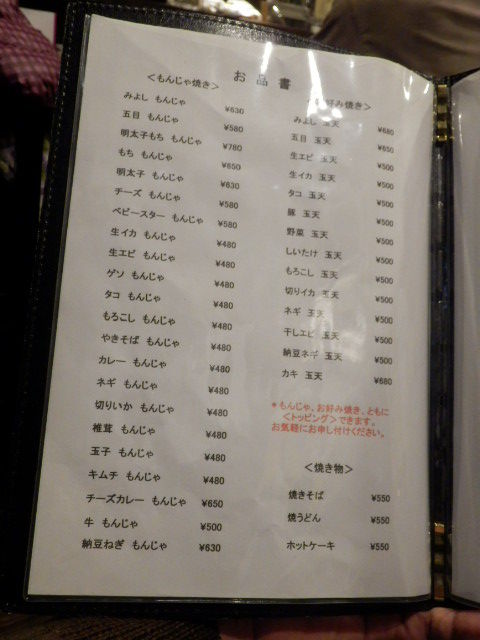 お品書
＜もんじゃ焼き＞
みよし もんじゃ ¥630
五目 もんじゃ ¥580
明太子もち もんじゃ ¥780
もち もんじゃ ¥650
明太子 もんじゃ ¥630
チーズ もんじゃ ¥580
ベビースター もんじゃ ¥580
生イカ もんじゃ ¥480
生エビ もんじゃ ¥480
ゲソ もんじゃ ¥480
タコ もんじゃ ¥480
もろこし もんじゃ ¥480
やきそば もんじゃ ¥480
カレー もんじゃ ¥480
ネギ もんじゃ ¥480
切りいか もんじゃ ¥480
椎茸 もんじゃ ¥480
玉子 もんじゃ ¥480
キムチ もんじゃ ¥480
チーズカレー もんじゃ ¥650
牛 もんじゃ ¥500
納豆ねぎ もんじゃ ¥630
好み焼き＞
みよし 玉天 ¥680
五目 玉天 ¥650
生エビ 玉天 ¥500
生イカ 玉天 ¥500
タコ 玉天 ¥500
豚 玉天 ¥500
野菜 玉天 ¥500
しいたけ 玉天 ¥500
もろこし 玉天 ¥500
切りイカ 玉天 ¥500
ネギ 玉天 ¥500
干しエビ 玉天 ¥500
納豆ネギ 玉天 ¥500
カキ 玉天 ¥680
＊もんじゃ、お好み焼き、ともに
＜トッピング＞できます。
お気軽にお申し付けください。
＜焼き物＞
焼きそば ¥550
焼うどん ¥550
ホットケーキ ¥550